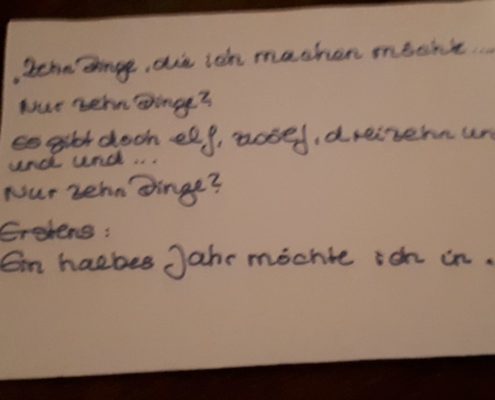 . Zehn Dinge, die ich machen möchte ...
Nur zehn Dinge?
es gibt doch elf, zwölf, dreizehn un
und und ...
Nur zehn Dinge?
Erstens:
Ein halbes Jahr möchte ich in .